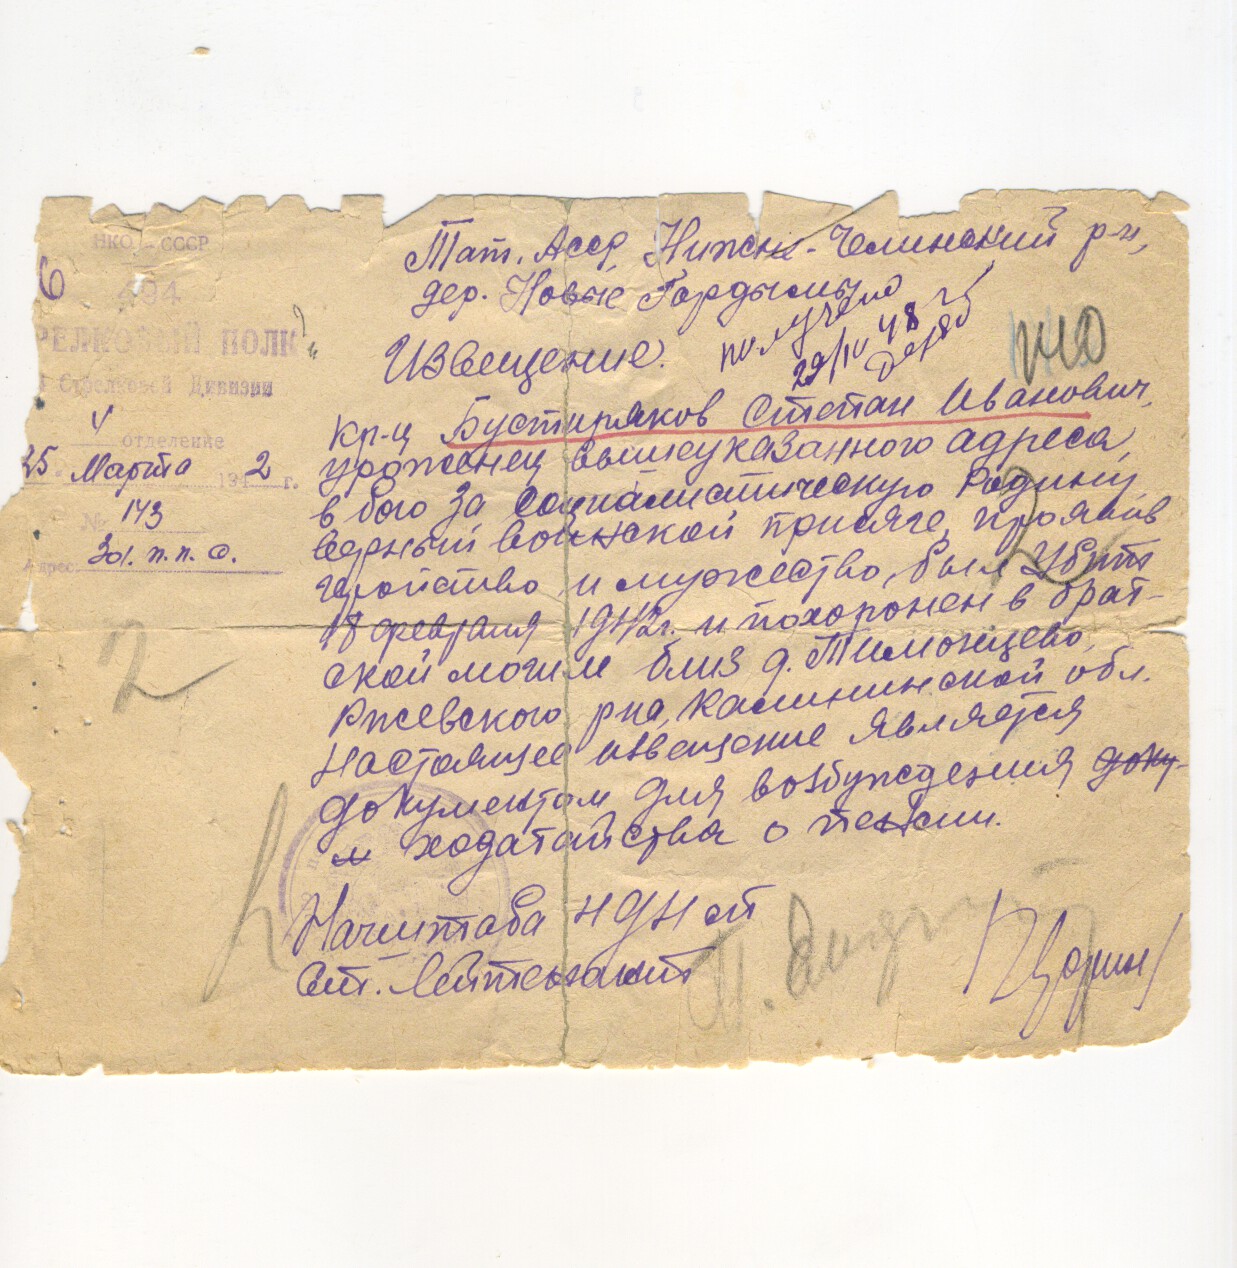 НКО СССР
6
494
РЕЛКОВЫЙ ПОЛК
Стрелковой Дивизии
4 отделение
25 Марта 1942 г.
№ 143
Адрес
Тат. Асср, Нижне-Челнинский р-н,
дер. Новые Гардымы
получено
29/IV 48 г.
Извещение.
кр-ц Бустиряков Степан Иванович,
уроженец вышеуказанного адреса,
в бою за социалистическую Родину,
верный воинской присяге, проявив
геройство и мужество, был убит
18 февраля 1942г. и похоронен в брат-
ской могил близ д. Тимонцево,
Ржевского рна, Калининской обл.
Настоящее извещение является
документом для возбуждения доку-
м ходатайства о пенсии.
Начштаба
Ст. лейтенант
2
2